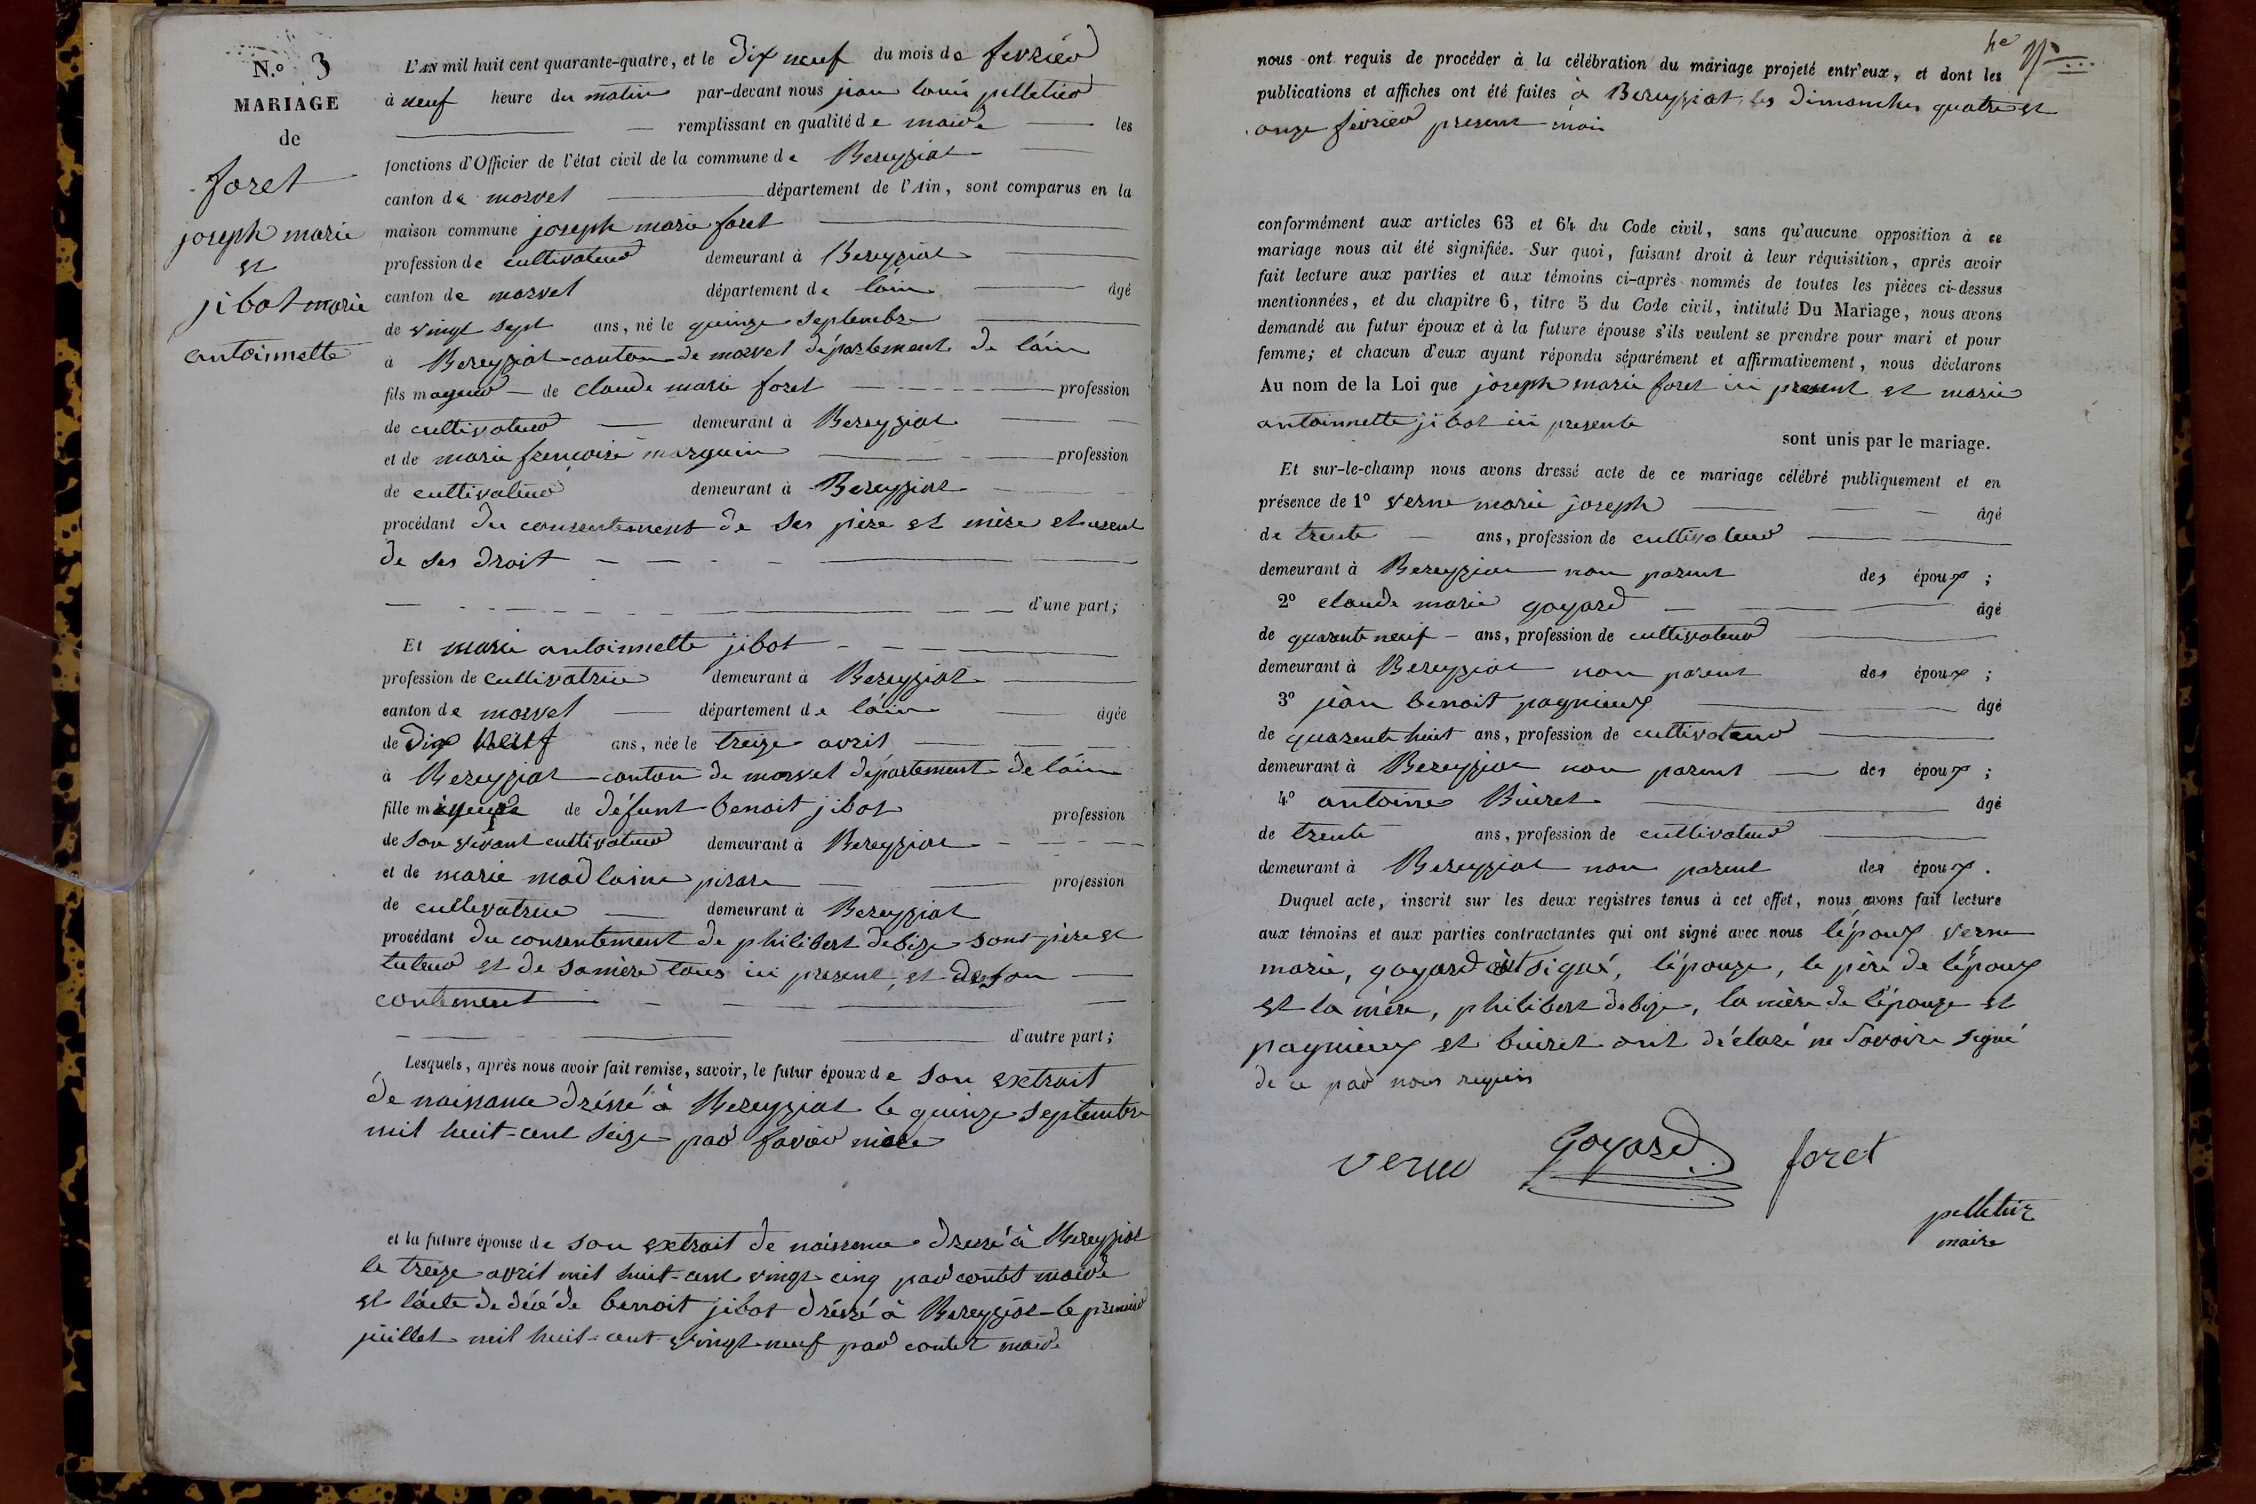 N.º 3
MARIAGE
de
foret
joseph marie
et
jibot marie
antoinnette
L'AN mil huit cent quarante-quatre, et le dix neuf du mois de fevrier
à neuf heure du matin par-devant nous jean louis pelletier
remplissant en qualité de maire les
fonctions d'Officier de l'état civil de la commune de Bereyziat
canton de marvel département de l'Ain, sont comparus en la
maison commune joseph marie foret
profession de cultivateur demeurant à Bereyziat
canton de marvel département de láin âgé
de vingt sept ans, né le quinze septembre
à Bereyziat canton de marvel département de láin
fils mageur de claude marie foret profession
de cultivateur demeurant à Bereyziat
et de marie françoise marguin profession
de cultivateur demeurant à Bereyziat
procédant du consentement de ses père et mère et usent
de ses droit
d'une part;
Et marie antoinnette jibot
profession de cultivatrice demeurant à Bereyziat
canton de marvel département de láin âgée
de dix neuf ans, née le treize avril
à Bereyziat canton de marvel département de láin
fille de défunt benoit jibot profession
de son vivant cultivateur demeurant à Bereyziat
et de marie madlaine profession
de cultivatrice demeurant à Bereyziat
procédant du consentement de philibert debize père et
tuteur et de samère tous ici present, et de son
contement
d'autre part;
Lesquels, après nous avoir fait remise, savoir, le futur époux de son extrait
de naissance dréssé à Bereyziat le quinze septembre
mil huit-cent seize par favier maire
et la future épouse de son extrait de naissance dressé à Bereyziat
le treize avril mil huit-cent vingt cinq par contet maire
et lácte de décé de benoit jibot dréssé à Bereyziat le premier
juillet mil huit-cent vingt neuf par contet maire
nous ont requis de procéder à la célébration du mariage projeté entr'eux, et dont les
publications et affiches ont été faites à Bereyziat, les dimanches quatre et
onze fevrier present mois
conformément aux articles 63 et 64 du Code civil, sans qu'aucune opposition à ce
mariage nous ait été signifiée. Sur quoi, faisant droit à leur réquisition, après avoir
fait lecture aux parties et aux témoins ci-après nommés de toutes les pièces ci-dessus
mentionnées, et du chapitre 6, titre 5 du Code civil, intitulé Du Mariage, nous avons
demandé au futur époux et à la future épouse s'ils veulent se prendre pour mari et pour
femme; et chacun d'eux ayant répondu séparément et affirmativement, nous déclarons
Au nom de la Loi que joseph marie foret ici present et marie
antoinnette jibot ici presente
sont unis par le mariage.
Et sur-le-champ nous avons dressé acte de ce mariage célébré publiquement et en
présence de 1º verne marie joseph âgé
de trente ans, profession de cultivateur
demeurant à Bereyziat non parent des époux;
2º claude marie goyard âgé
de quarente neuf ans, profession de cultivateur
demeurant à Bereyziat non parent des époux;
3º jean benoit pagnieux âgé
de quarente huit ans, profession de cultivateur
demeurant à Bereyziat non parent des époux;
4º antoine Buiret âgé
de trente ans, profession de cultivateur
demeurant à Bereyziat non parent des époux.
Duquel acte, inscrit sur les deux registres tenus à cet effet, nous avons fait lecture
aux témoins et aux parties contractantes qui ont signé avec nous lépoux verne
marie, goyard signé, l'épouze, le père de lépoux
et la mère, philibert debize, la mère de l'épouze et
pagnieux et buiret ont déclaré ne Savoire signé
de ce par nous requis
verne
Goyard
foret
pelletier
maire